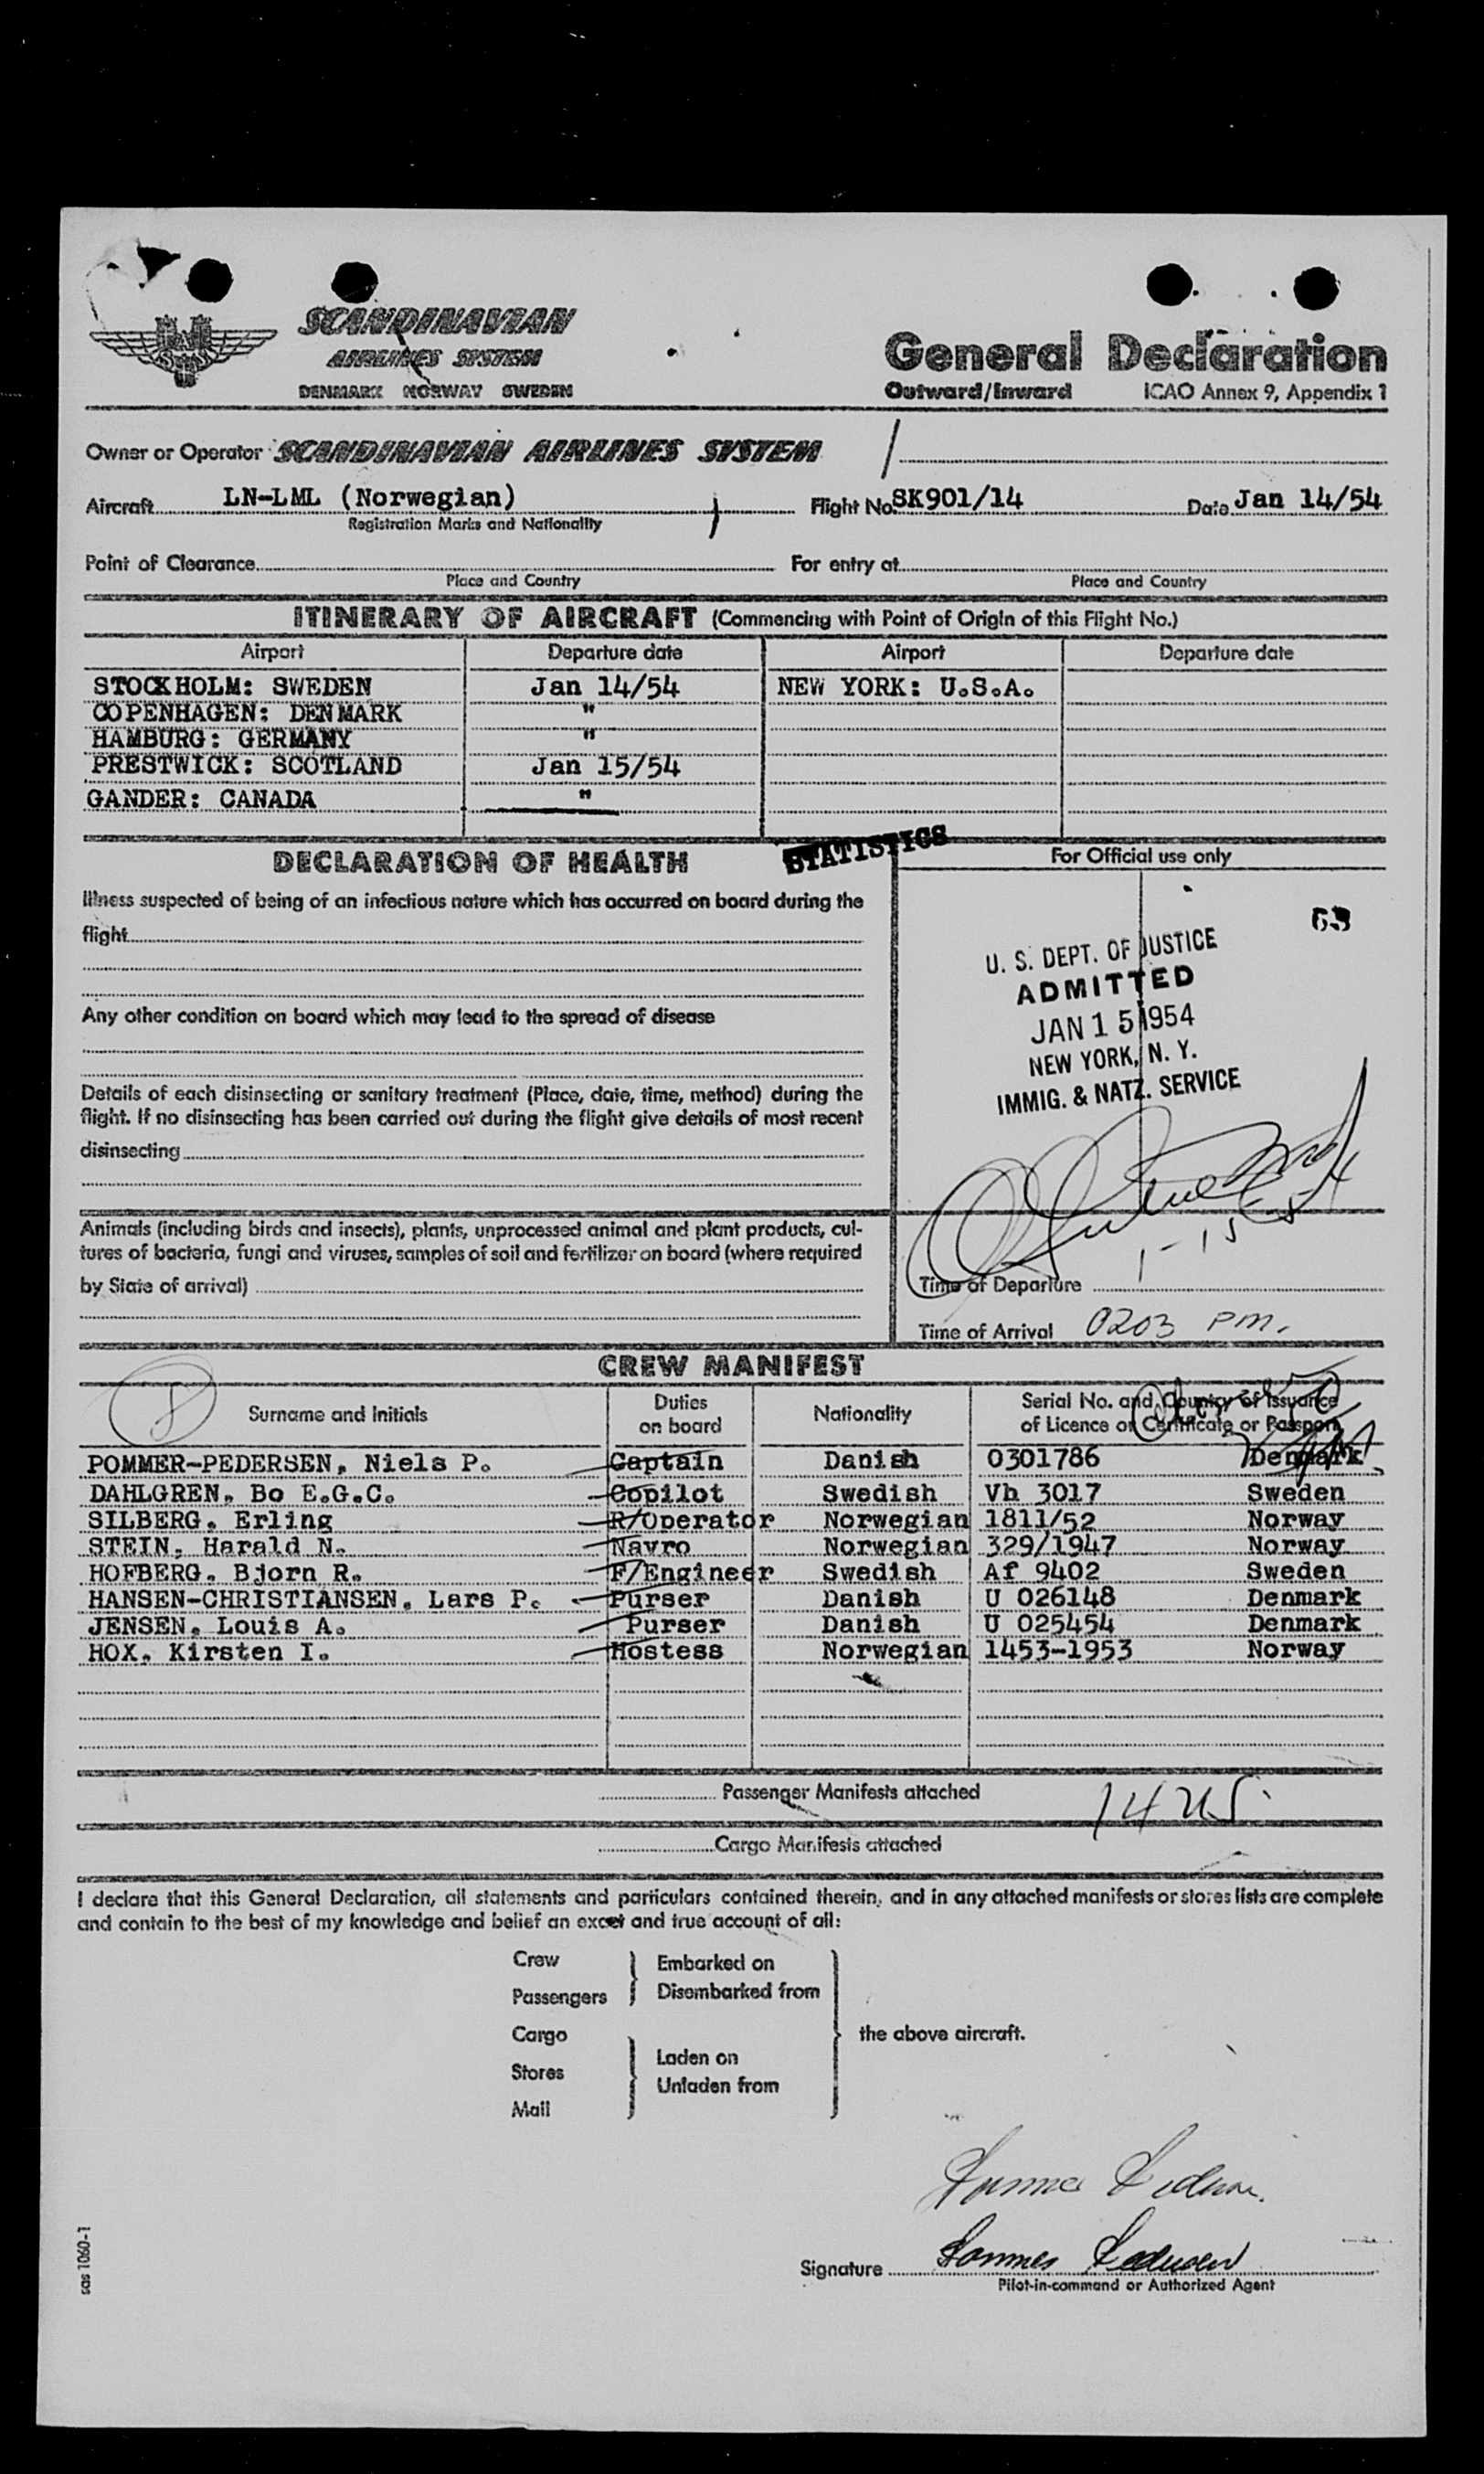 SCANDINAVIAN
AIRLINES SYSTEM
DENMARK NORWAY SWEDEN
General Declaration
Outward/Inward ICAO Annex 9, Appendix 1
Owner or Operator SCANDINAVIAN AIRLINES SYSTEM
Aircraft LN-LML (Norwegian) Flight No. SK901/14 Date Jan 14/54
Registration Marks and Nationality
Point of Clearance For entry at
Place and Country Place and Country
ITINERARY OF AIRCRAFT (Commencing with Point of Origin of this Flight No.)
Airport Departure date Airport Departure date
STOCKHOLM: SWEDEN Jan 14/54 NEW YORK: U.S.A.
COPENHAGEN: DENMARK "
HAMBURG: GERMANY "
PRESTWICK: SCOTLAND Jan 15/54
GANDER: CANADA "
STATISTICS
DECLARATION OF HEALTH
For Official use only
Illness suspected of being of an infectious nature which has occurred on board during the
flight
Any other condition on board which may lead to the spread of disease
Details of each disinsecting or sanitary treatment (Place, date, time, method) during the
flight. If no disinsecting has been carried out during the flight give details of most recent
disinsecting
Animals (including birds and insects), plants, unprocessed animal and plant products, cul-
tures of bacteria, fungi and viruses, samples of soil and fertilizer on board (where required
by State of arrival)
63
U. S. DEPT. OF JUSTICE
ADMITTED
JAN 15 1954
NEW YORK, N. Y.
IMMIG. & NATZ. SERVICE
1-15-54
Time of Departure
Time of Arrival 0203 PM.
CREW MANIFEST
8
Surname and Initials Duties on board Nationality Serial No. and Country of Issuance of Licence or Certificate or Passport
POMMER-PEDERSEN, Niels P. Captain Danish 0301786 Denmark
DAHLGREN, Bo E.G.C. Copilot Swedish Vh 3017 Sweden
SILBERG, Erling R/Operator Norwegian 1811/52 Norway
STEIN, Harald N. Navro Norwegian 329/1947 Norway
HOFBERG, Bjorn R. F/Engineer Swedish Af 9402 Sweden
HANSEN-CHRISTIANSEN, Lars P. Purser Danish U 026148 Denmark
JENSEN, Louis A. Purser Danish U 025454 Denmark
HOX, Kirsten I. Hostess Norwegian 1453-1953 Norway
Passenger Manifests attached
Cargo Manifests attached
I declare that this General Declaration, all statements and particulars contained therein, and in any attached manifests or stores lists are complete
and contain to the best of my knowledge and belief an exact and true account of all:
Crew
Passengers
Embarked on
Disembarked from
Cargo
Stores
Mail
Laden on
Unladen from
the above aircraft.
Signature
Pilot-in-command or Authorized Agent
sas 1060-1